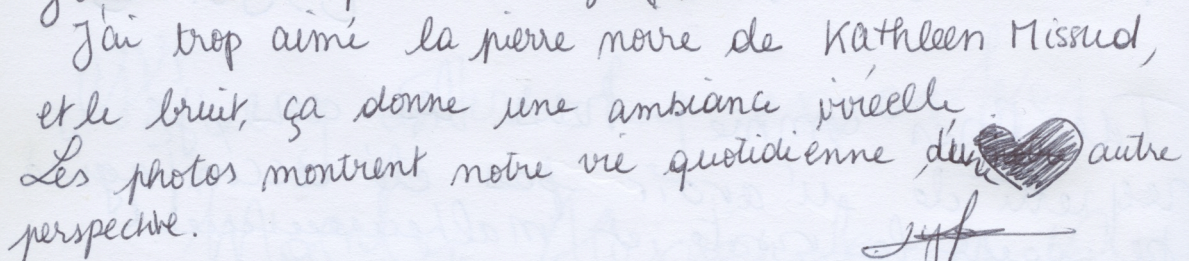 J'ai trop aimé la pierre noire de Kathleen Missud,
et le bruit, ça donne une ambiance irréelle
Les photos montrent notre vie quotidiénne d'une autre
perspective.